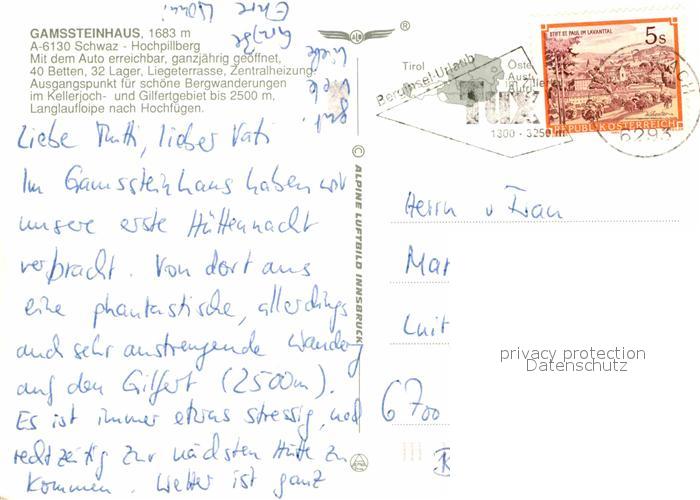 GAMSSTEINHAUS, 1683 m
A-6130 Schwaz - Hochpillberg
Mit dem Auto erreichbar, ganzjährig geöffnet,
40 Betten, 32 Lager, Liegeterrasse, Zentralheizung.
Ausgangspunkt für schöne Bergwanderungen
im Kellerjoch- und Gilfertgebiet bis 2500 m,
Langlaufloipe nach Hochfügen.
Liebe Mutti, lieber Vati
Im Gamssteinhaus haben wir
unsere erste Hüttennacht
verbracht. Von dort aus
eine phantastische, allerdings
auch sehr anstrengende Wanderg
auf den Gilfert (2500m).
Es ist immer etwas stressig, und
rechtzeitig zur nächsten Hütte zu
kommen. Wetter ist ganz
gut.
Viele
liebe
Grüße
Eure
®
© ALPINE LUFTBILD INNSBRUCK
Tirol
Berginsel-Urlaub
TUX
1300 - 3250 m
STIFT ST. PAUL IM LAVANTTAL
5s
REPUBLIK ÖSTERREICH
6293
Herrn u Frau
Mar
Luit
6700
privacy protection
Datenschutz